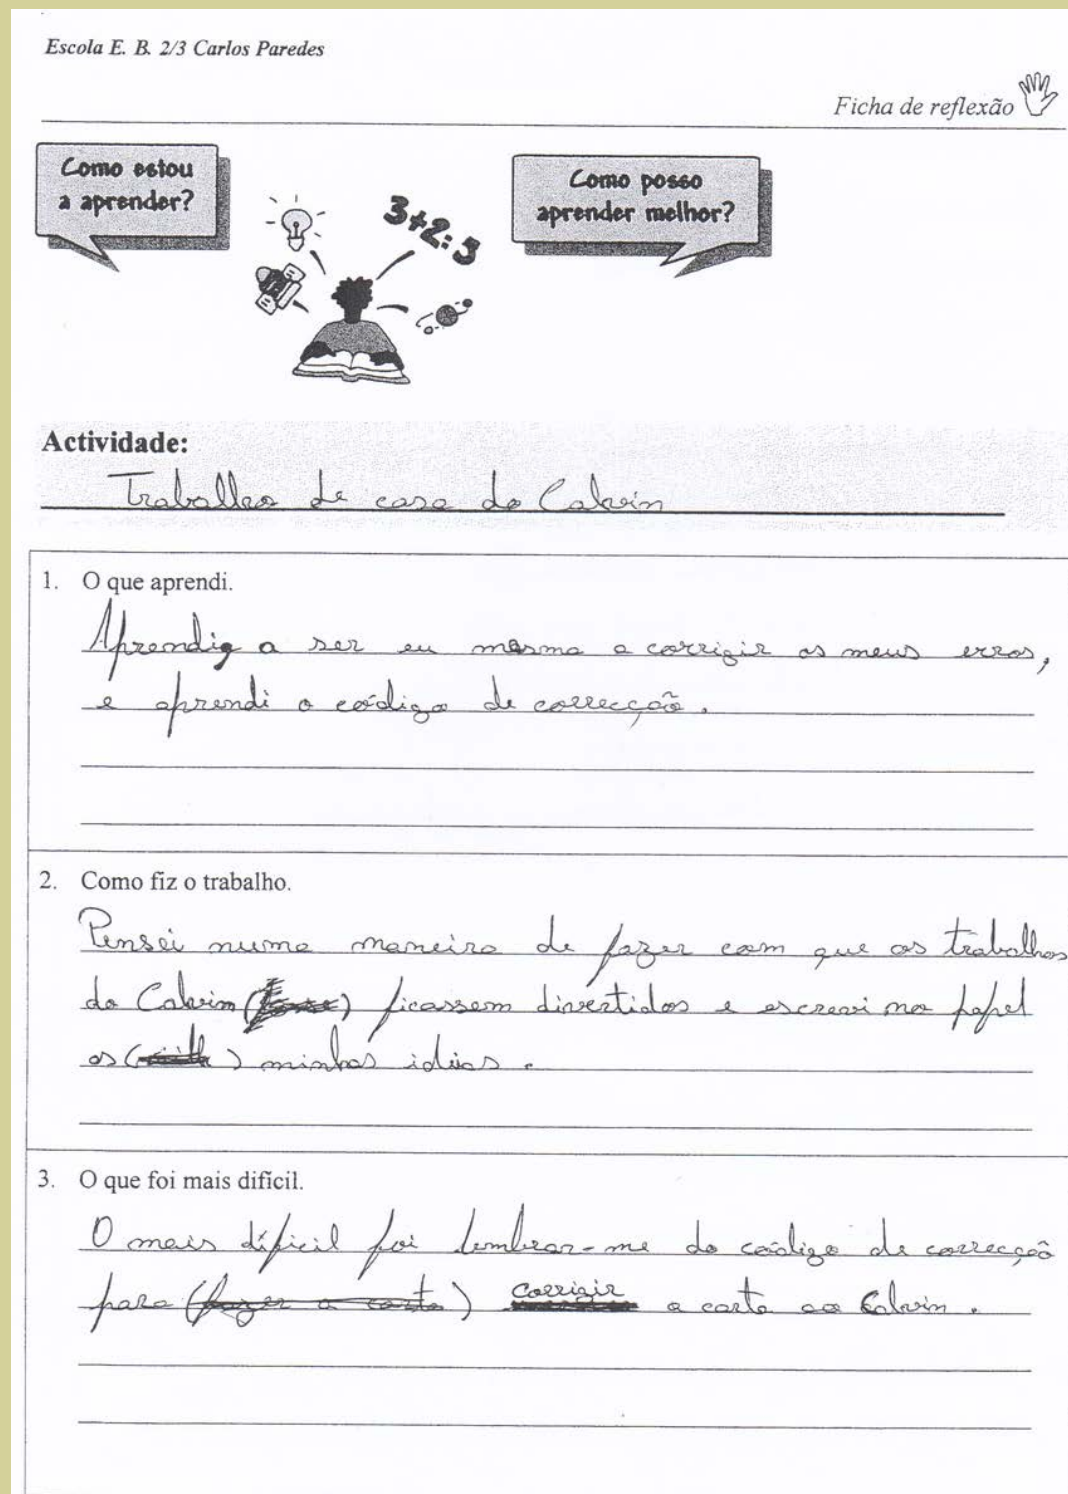 Escola E. B. 2/3 Carlos Paredes
Ficha de reflexão
Como estou
a aprender?
Como posso
aprender melhor?
3+2=5
Actividade:
Trabalho de casa do Calvin
1. O que aprendi.
Aprendi a ser eu mesma a corrigir os meus erros,
e aprendi o código de correcção.
2. Como fiz o trabalho.
Pensei numa maneira de fazer com que os trabalhos
do Calvin ( ) ficassem divertidos e escrevi no papel
as ( ) minhas idéias.
3. O que foi mais difícil.
O mais díficil foi lembrar-me do código de correcção
para (fazer a carta) corrigir a carta ao Calvin.